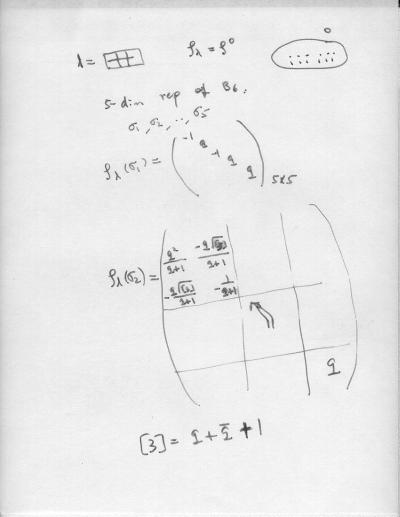 λ = ρ_λ = ρ⁰ 0
5-dim rep of B₆.
σ₁, σ₂, ..., σ₅
ρ_λ(σ₁) = ( -1 q -1 q q ) 5x5
ρ_λ(σ₂) = ( q²/q+1 -q√[3]/q+1
-q√[3]/q+1 -1/q+1
q )
[3] = q + q̄ + 1